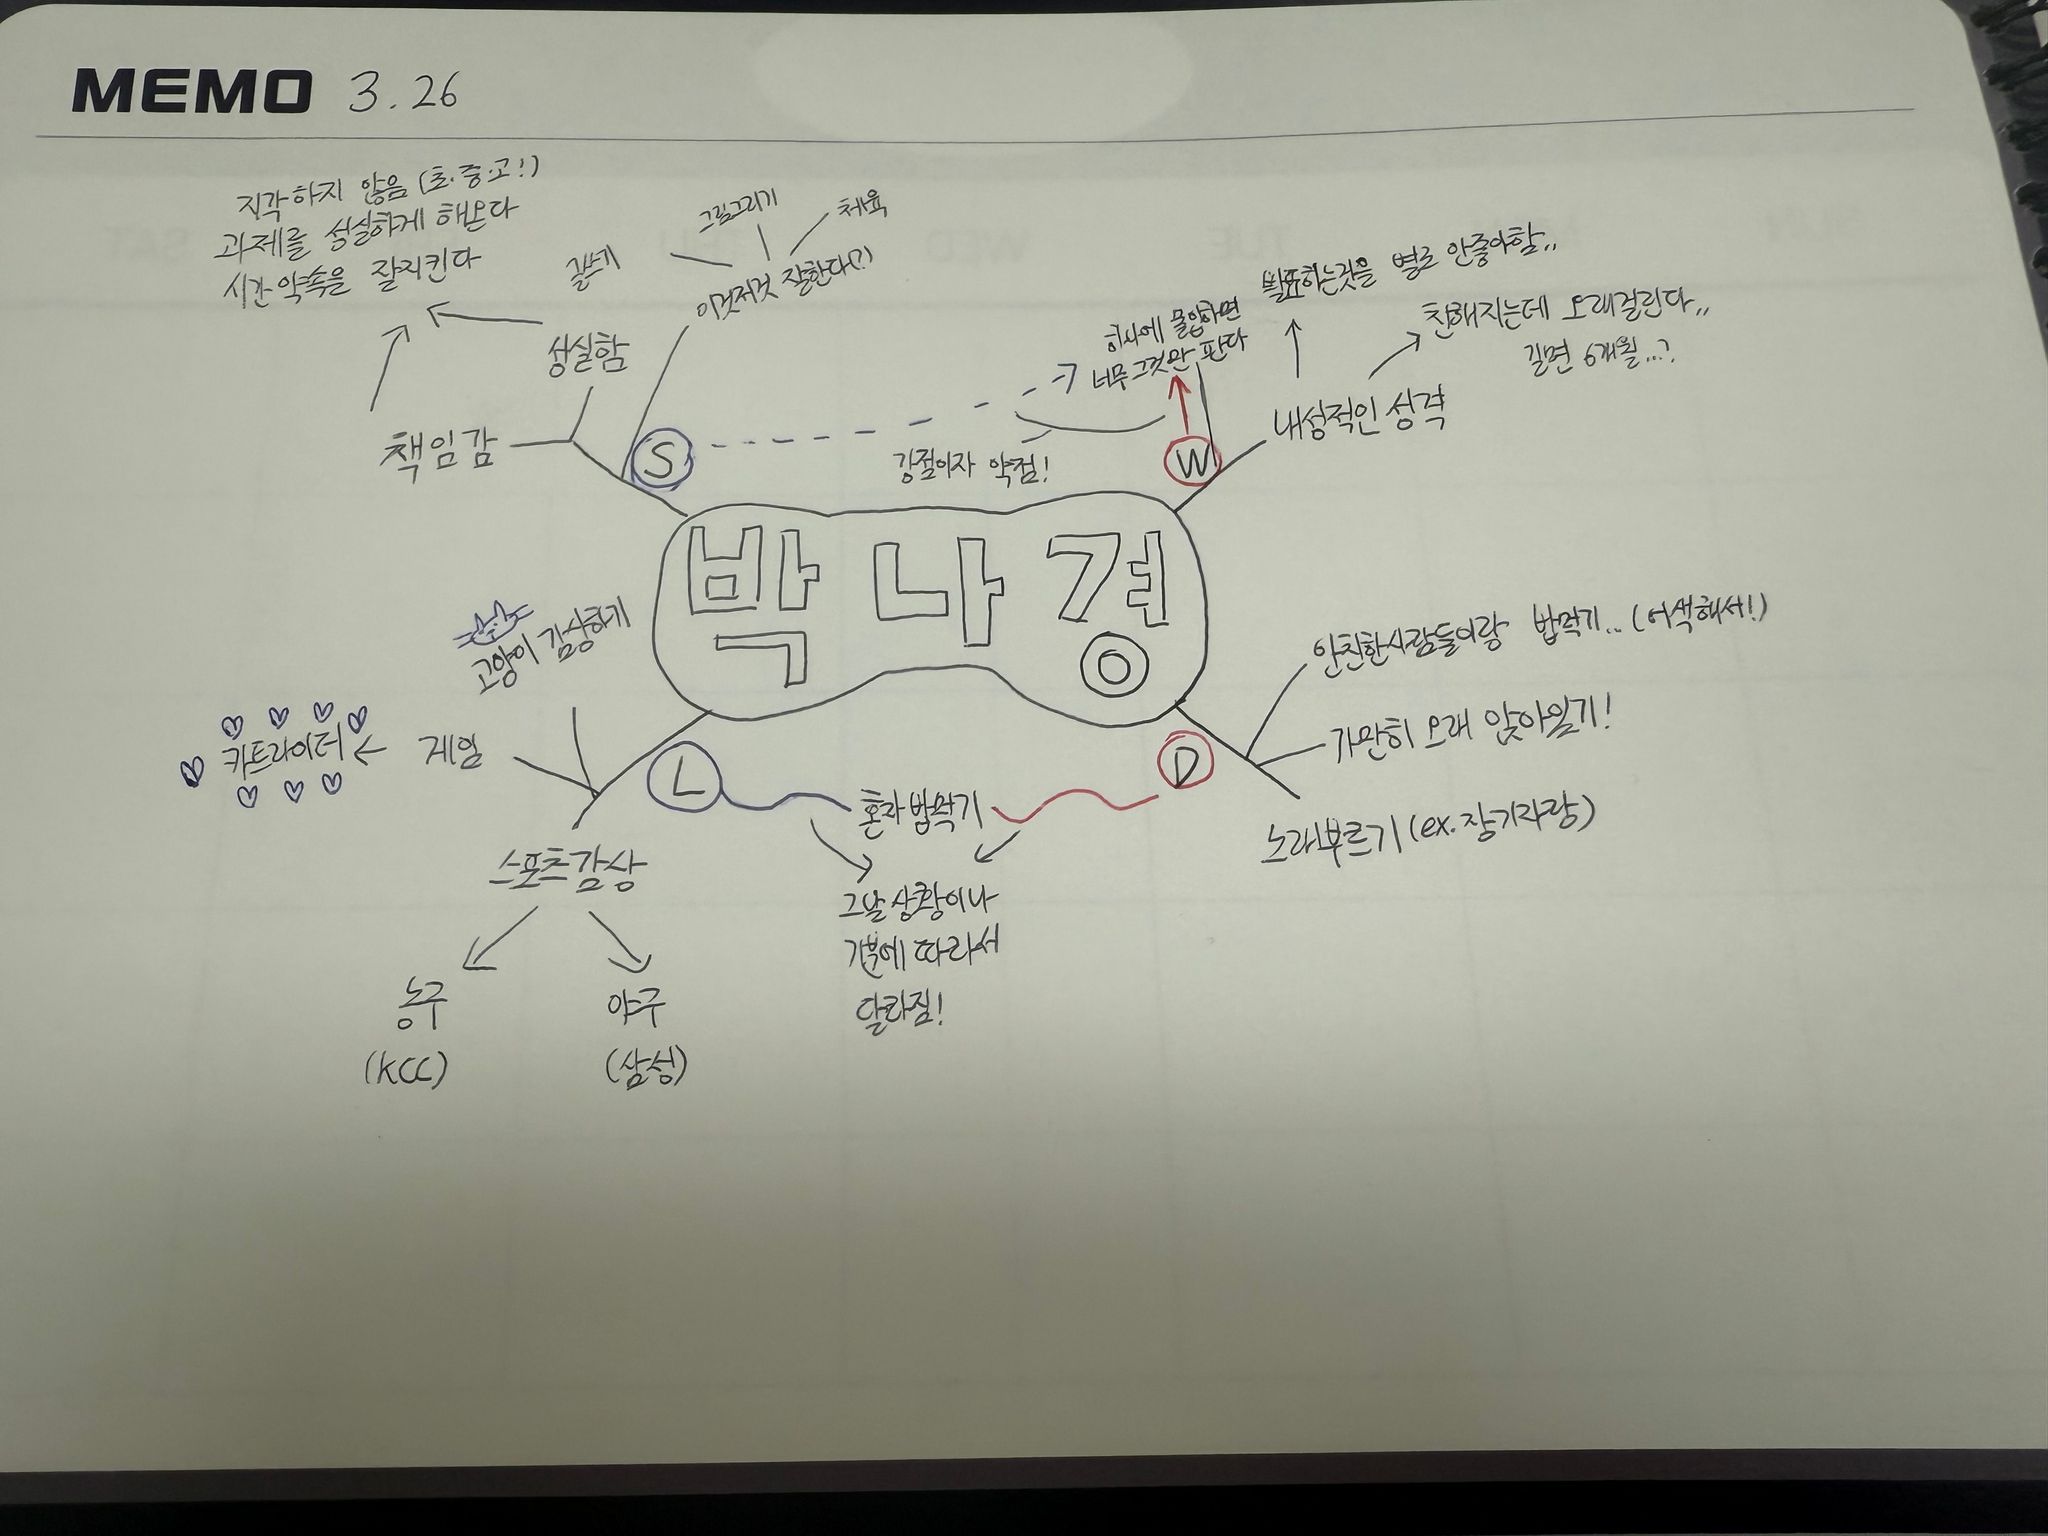 MEMO 3.26
지각하지 않음 (초.중.고!)
과제를 성실하게 해온다
시간 약속을 잘지킨다
성실함
책임감
글쓰기
그림그리기
체육
이것저것 잘한다(?)
S
강점이자 약점!
하나에 몰입하면
너무 그것만 판다
W
발표하는것을 별로 안좋아함..
친해지는데 오래걸린다..
길면 6개월...?
내성적인 성격
박나경
고양이 감상하기
게임
카트라이더
L
스포츠 감상
농구
(KCC)
야구
(삼성)
혼자 밥먹기
그날 상황이나
기분에 따라서
달라짐!
D
안친한사람들이랑 밥먹기.. (어색해서!)
가만히 오래 앉아있기!
노래부르기 (ex.장기자랑)